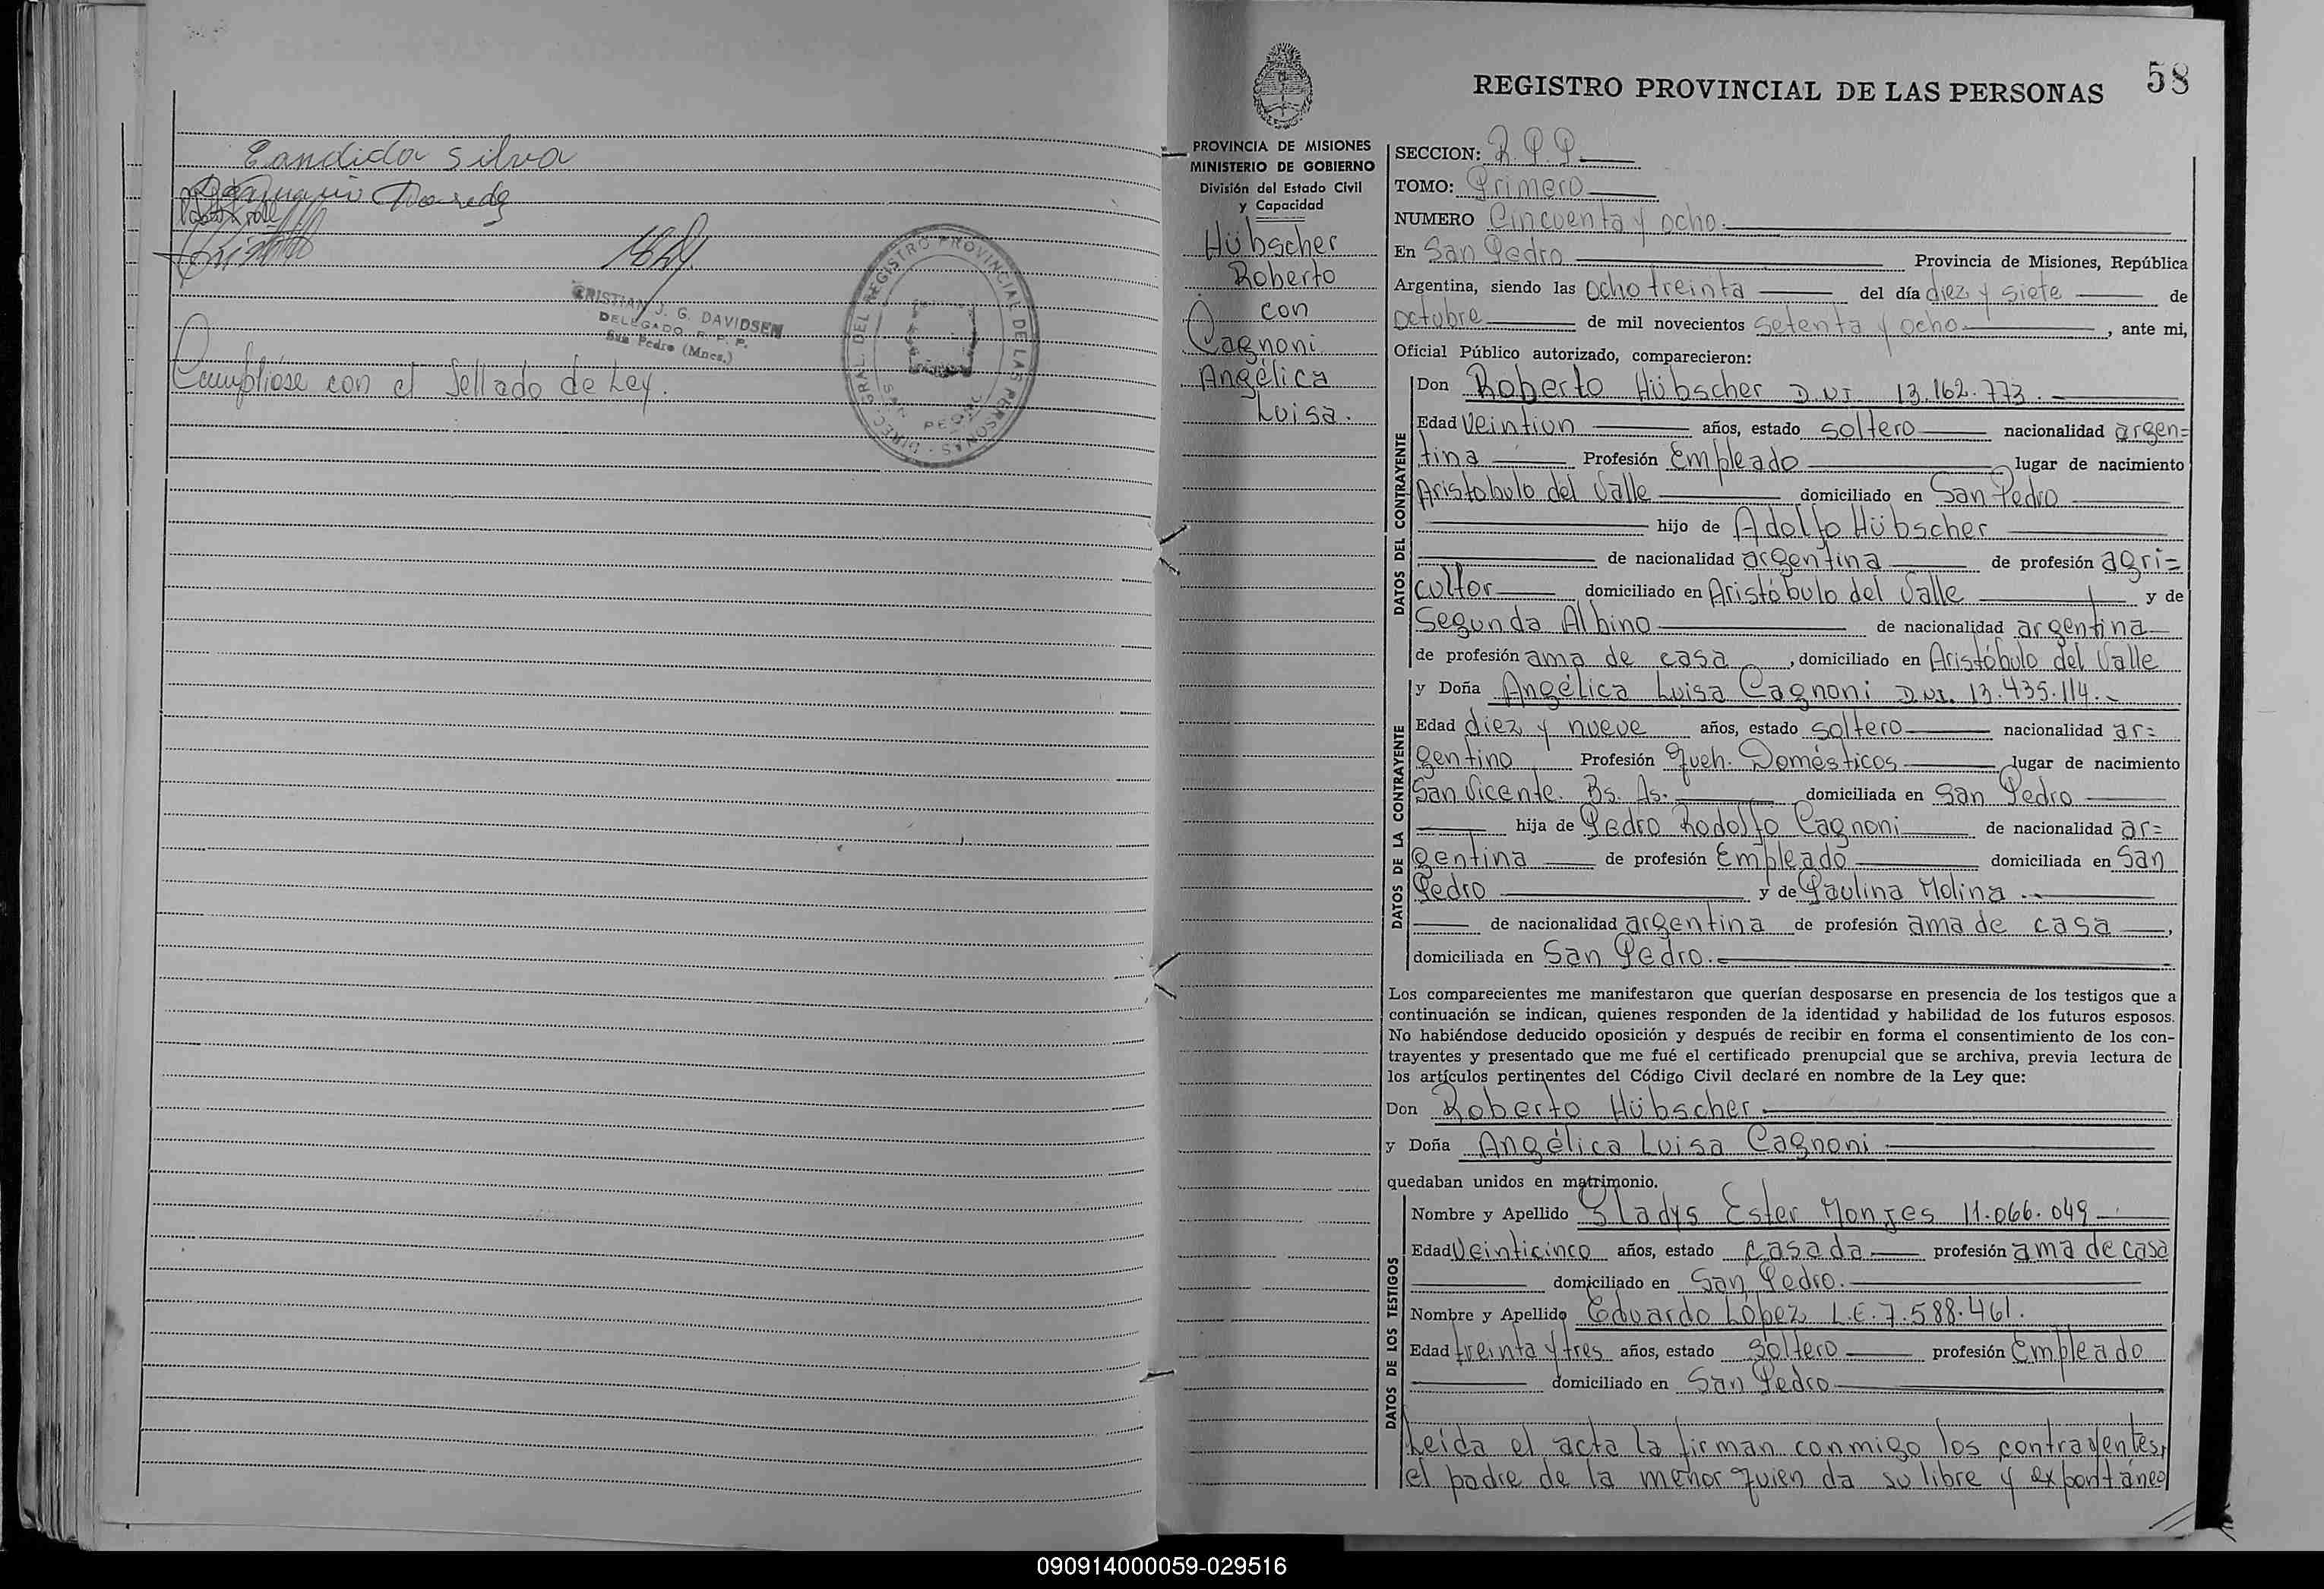 Candida Silva
CRISTIAN J. G. DAVIDSEN
DELEGADO R. P. P.
San Pedro (Mnes.)
DIREC. GRAL. DEL REGISTRO PROVINCIAL DE LAS PERSONAS
SAN PEDRO
Cumplióse con el Sellado de Ley.
58
REGISTRO PROVINCIAL DE LAS PERSONAS
PROVINCIA DE MISIONES
MINISTERIO DE GOBIERNO
División del Estado Civil
y Capacidad
Hübscher
Roberto
con
Cagnoni
Angélica
Luisa.
SECCION: R.P.P.
TOMO: Primero
NUMERO Cincuenta y ocho.
En San Pedro Provincia de Misiones, República
Argentina, siendo las ocho treinta del día diez y siete de
octubre de mil novecientos setenta y ocho, ante mi,
Oficial Público autorizado, comparecieron:
DATOS DEL CONTRAYENTE
Don Roberto Hübscher D.N.I. 13.162.773.
Edad Veintiun años, estado soltero nacionalidad argen=
tina Profesión Empleado lugar de nacimiento
Aristobulo del Valle domiciliado en San Pedro
hijo de Adolfo Hübscher
de nacionalidad argentina de profesión agri=
cultor domiciliado en Aristóbulo del Valle y de
Segunda Albino de nacionalidad argentina
de profesión ama de casa, domiciliado en Aristóbulo del Valle
DATOS DE LA CONTRAYENTE
y Doña Angélica Luisa Cagnoni D.N.I. 13.435.114.-
Edad diez y nueve años, estado soltero nacionalidad ar=
gentino Profesión Queh. Domésticos lugar de nacimiento
San Vicente. Bs. As. domiciliada en San Pedro
hija de Pedro Rodolfo Cagnoni de nacionalidad ar=
gentina de profesión Empleado domiciliada en San
Pedro y de Paulina Molina.
de nacionalidad argentina de profesión ama de casa,
domiciliada en San Pedro.
Los comparecientes me manifestaron que querían desposarse en presencia de los testigos que a
continuación se indican, quienes responden de la identidad y habilidad de los futuros esposos.
No habiéndose deducido oposición y después de recibir en forma el consentimiento de los con-
trayentes y presentado que me fué el certificado prenupcial que se archiva, previa lectura de
los artículos pertinentes del Código Civil declaré en nombre de la Ley que:
Don Roberto Hübscher
y Doña Angélica Luisa Cagnoni
quedaban unidos en matrimonio.
DATOS DE LOS TESTIGOS
Nombre y Apellido Gladys Ester Monjes 11.066.049
Edad Veinticinco años, estado casada profesión ama de casa
domiciliado en San Pedro.
Nombre y Apellido Eduardo López L.E. 7.588.461.
Edad treinta y tres años, estado soltero profesión Empleado
domiciliado en San Pedro
Leída el acta la firman conmigo los contrayentes,
el padre de la menor quien da su libre y expontáneo
090914000059-029516